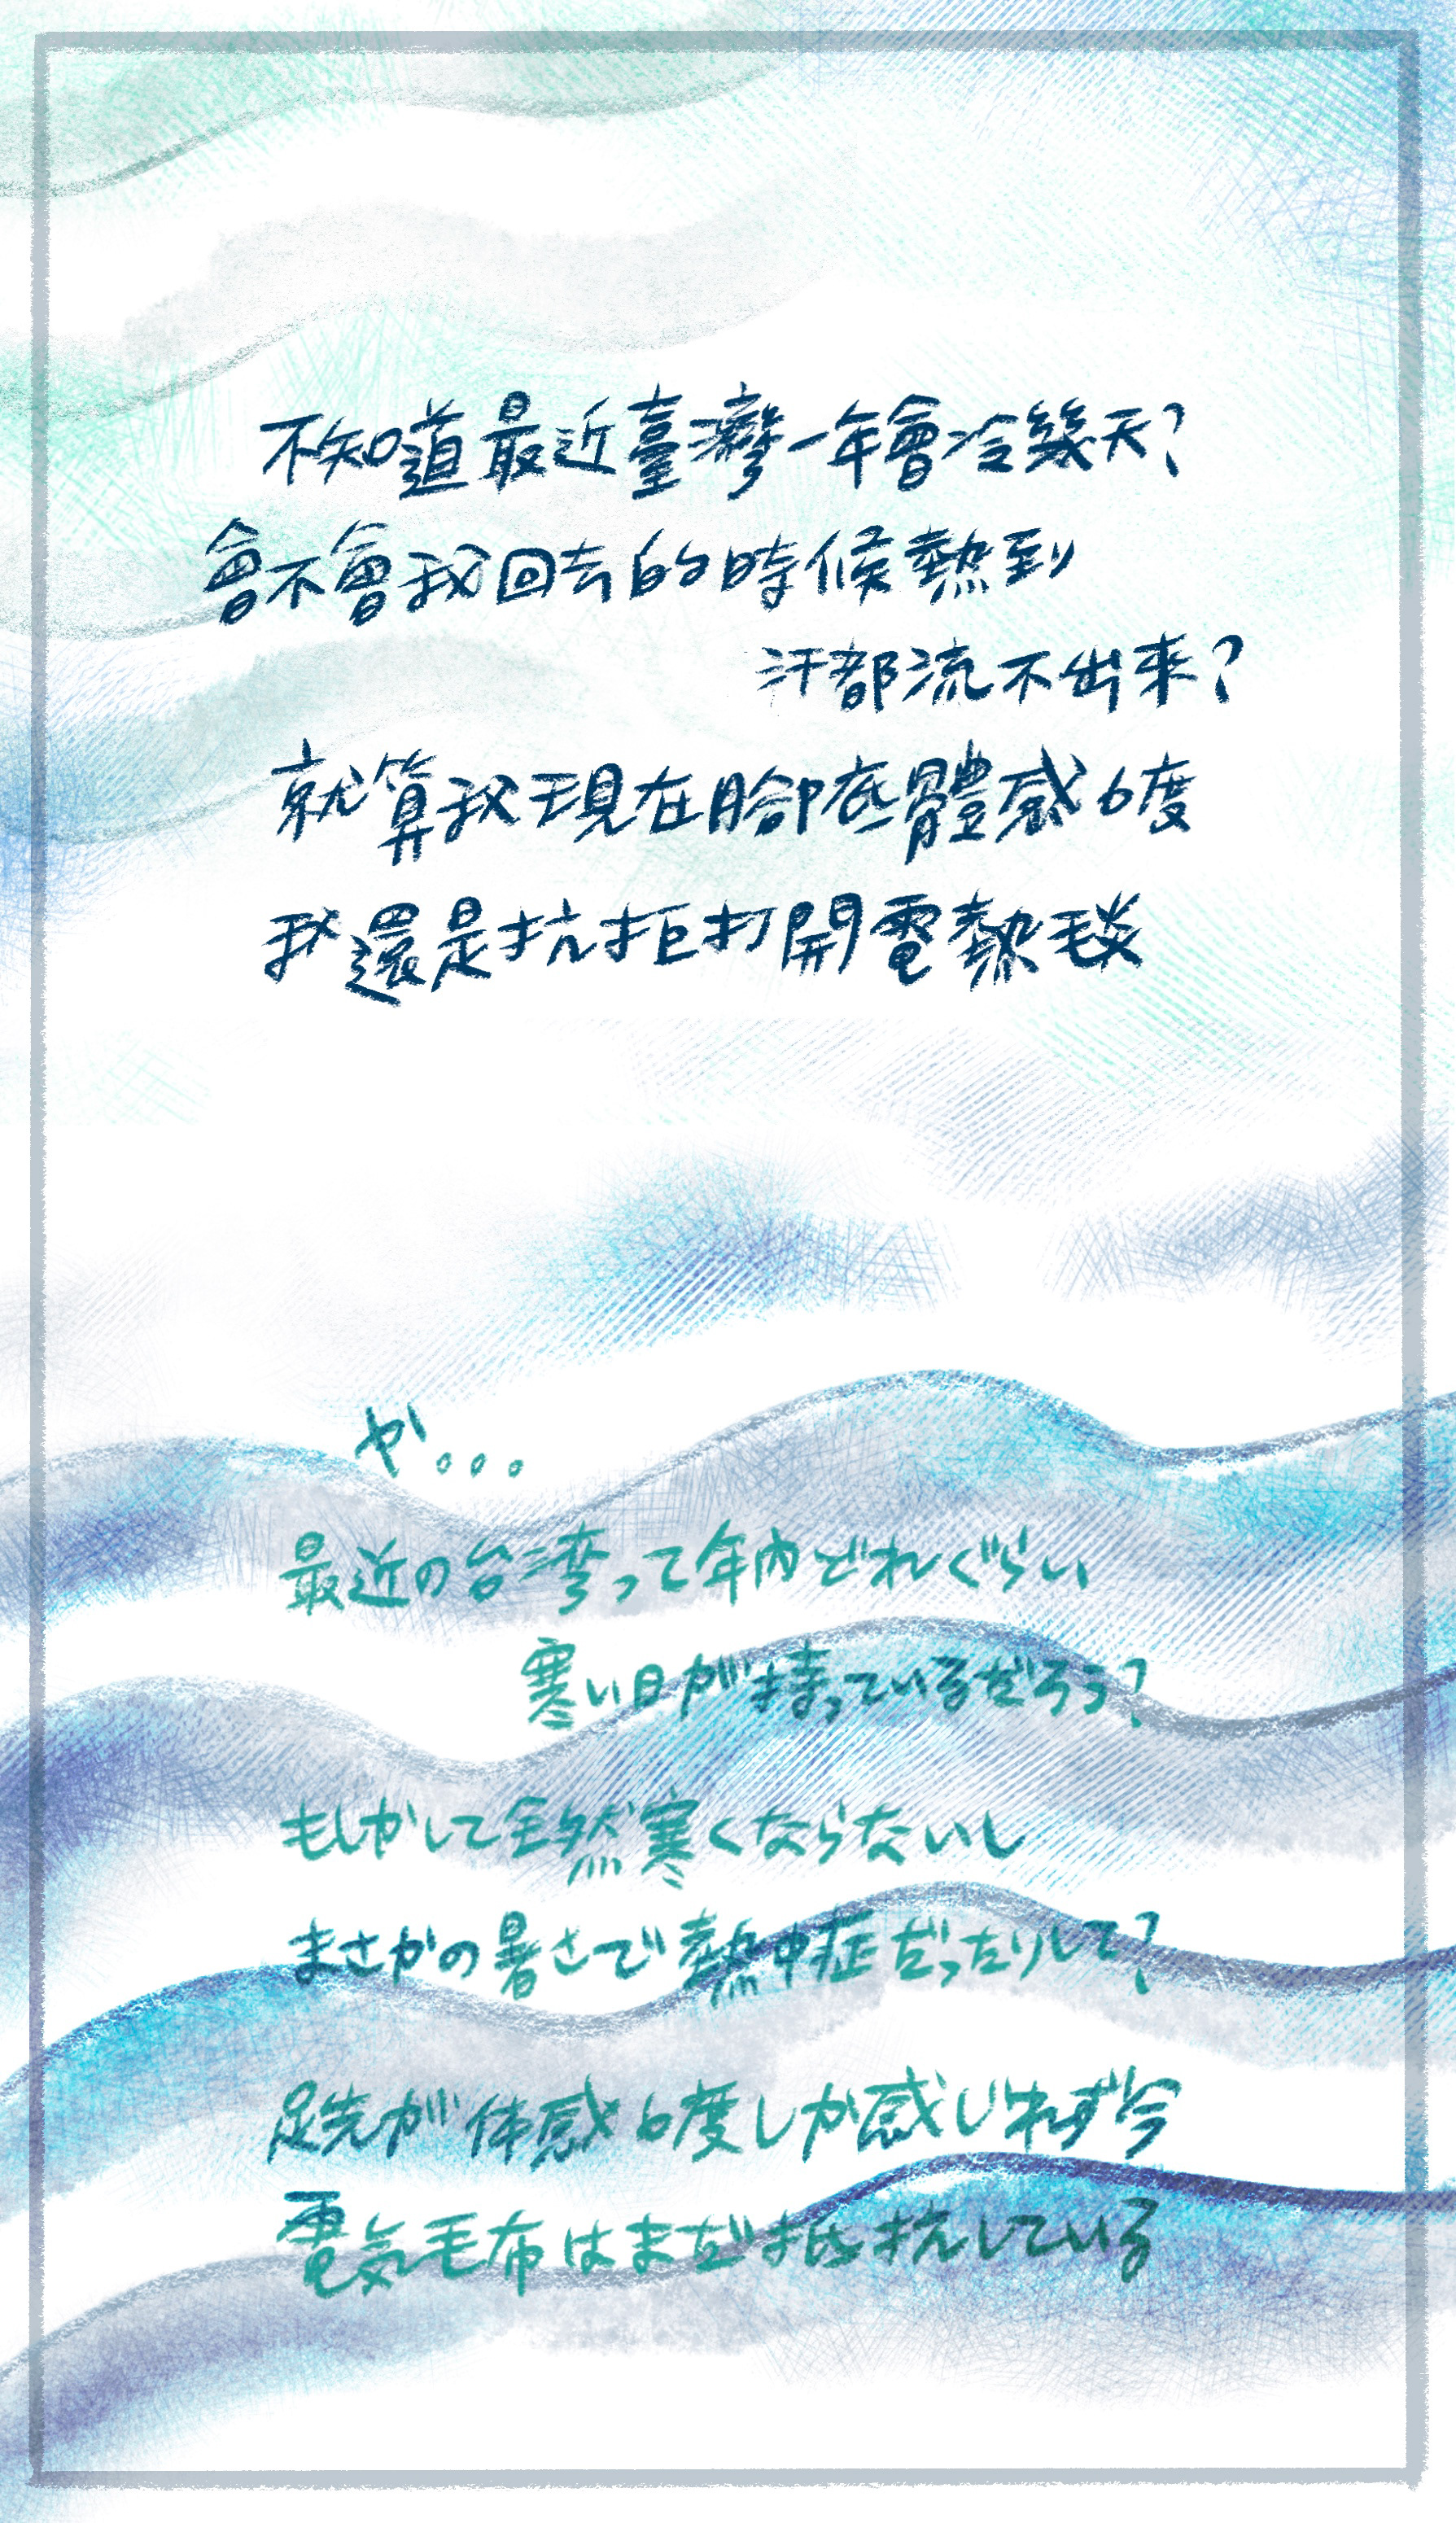 不知道最近臺灣一年會冷幾天?
會不會我回去的時候熱到
汗都流不出來?
就算我現在腳底體感6度
我還是抗拒打開電熱毯
や...
最近の台湾って年内どれぐらい
寒い日が持っているだろう?
もしかして全然寒くならないし
まさかの暑さで熱中症だったりして?
足先が体感6度しか感じれず今
電気毛布はまだ抵抗している